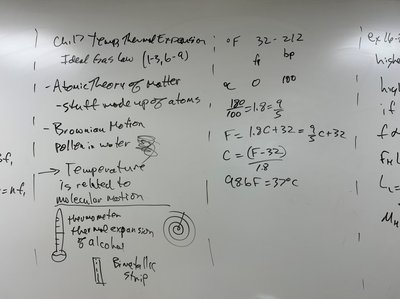 Ch.17 Temp, Thermal Expansion
Ideal Gas law (1-3, 6-9)
- Atomic Theory of Matter
- stuff made up of atoms
- Brownian Motion
pollen in water
→ Temperature
is related to
molecular motion
thermometer
thermal expansion
of alcohol
Bimetallic
strip
°F 32 - 212
fr bp
°C 0 100
180/100 = 1.8 = 9/5
F = 1.8C + 32 = 9/5 C + 32
C = (F - 32)/1.8
98.6F = 37°C
ex 16-
highe
high
if
f d
FH
L
MH
f1
= nf1